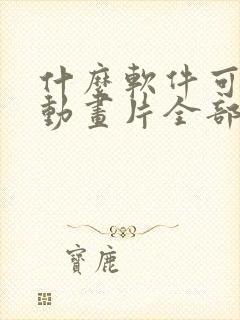 什麼軟件可
動畫片全部
寶鹿